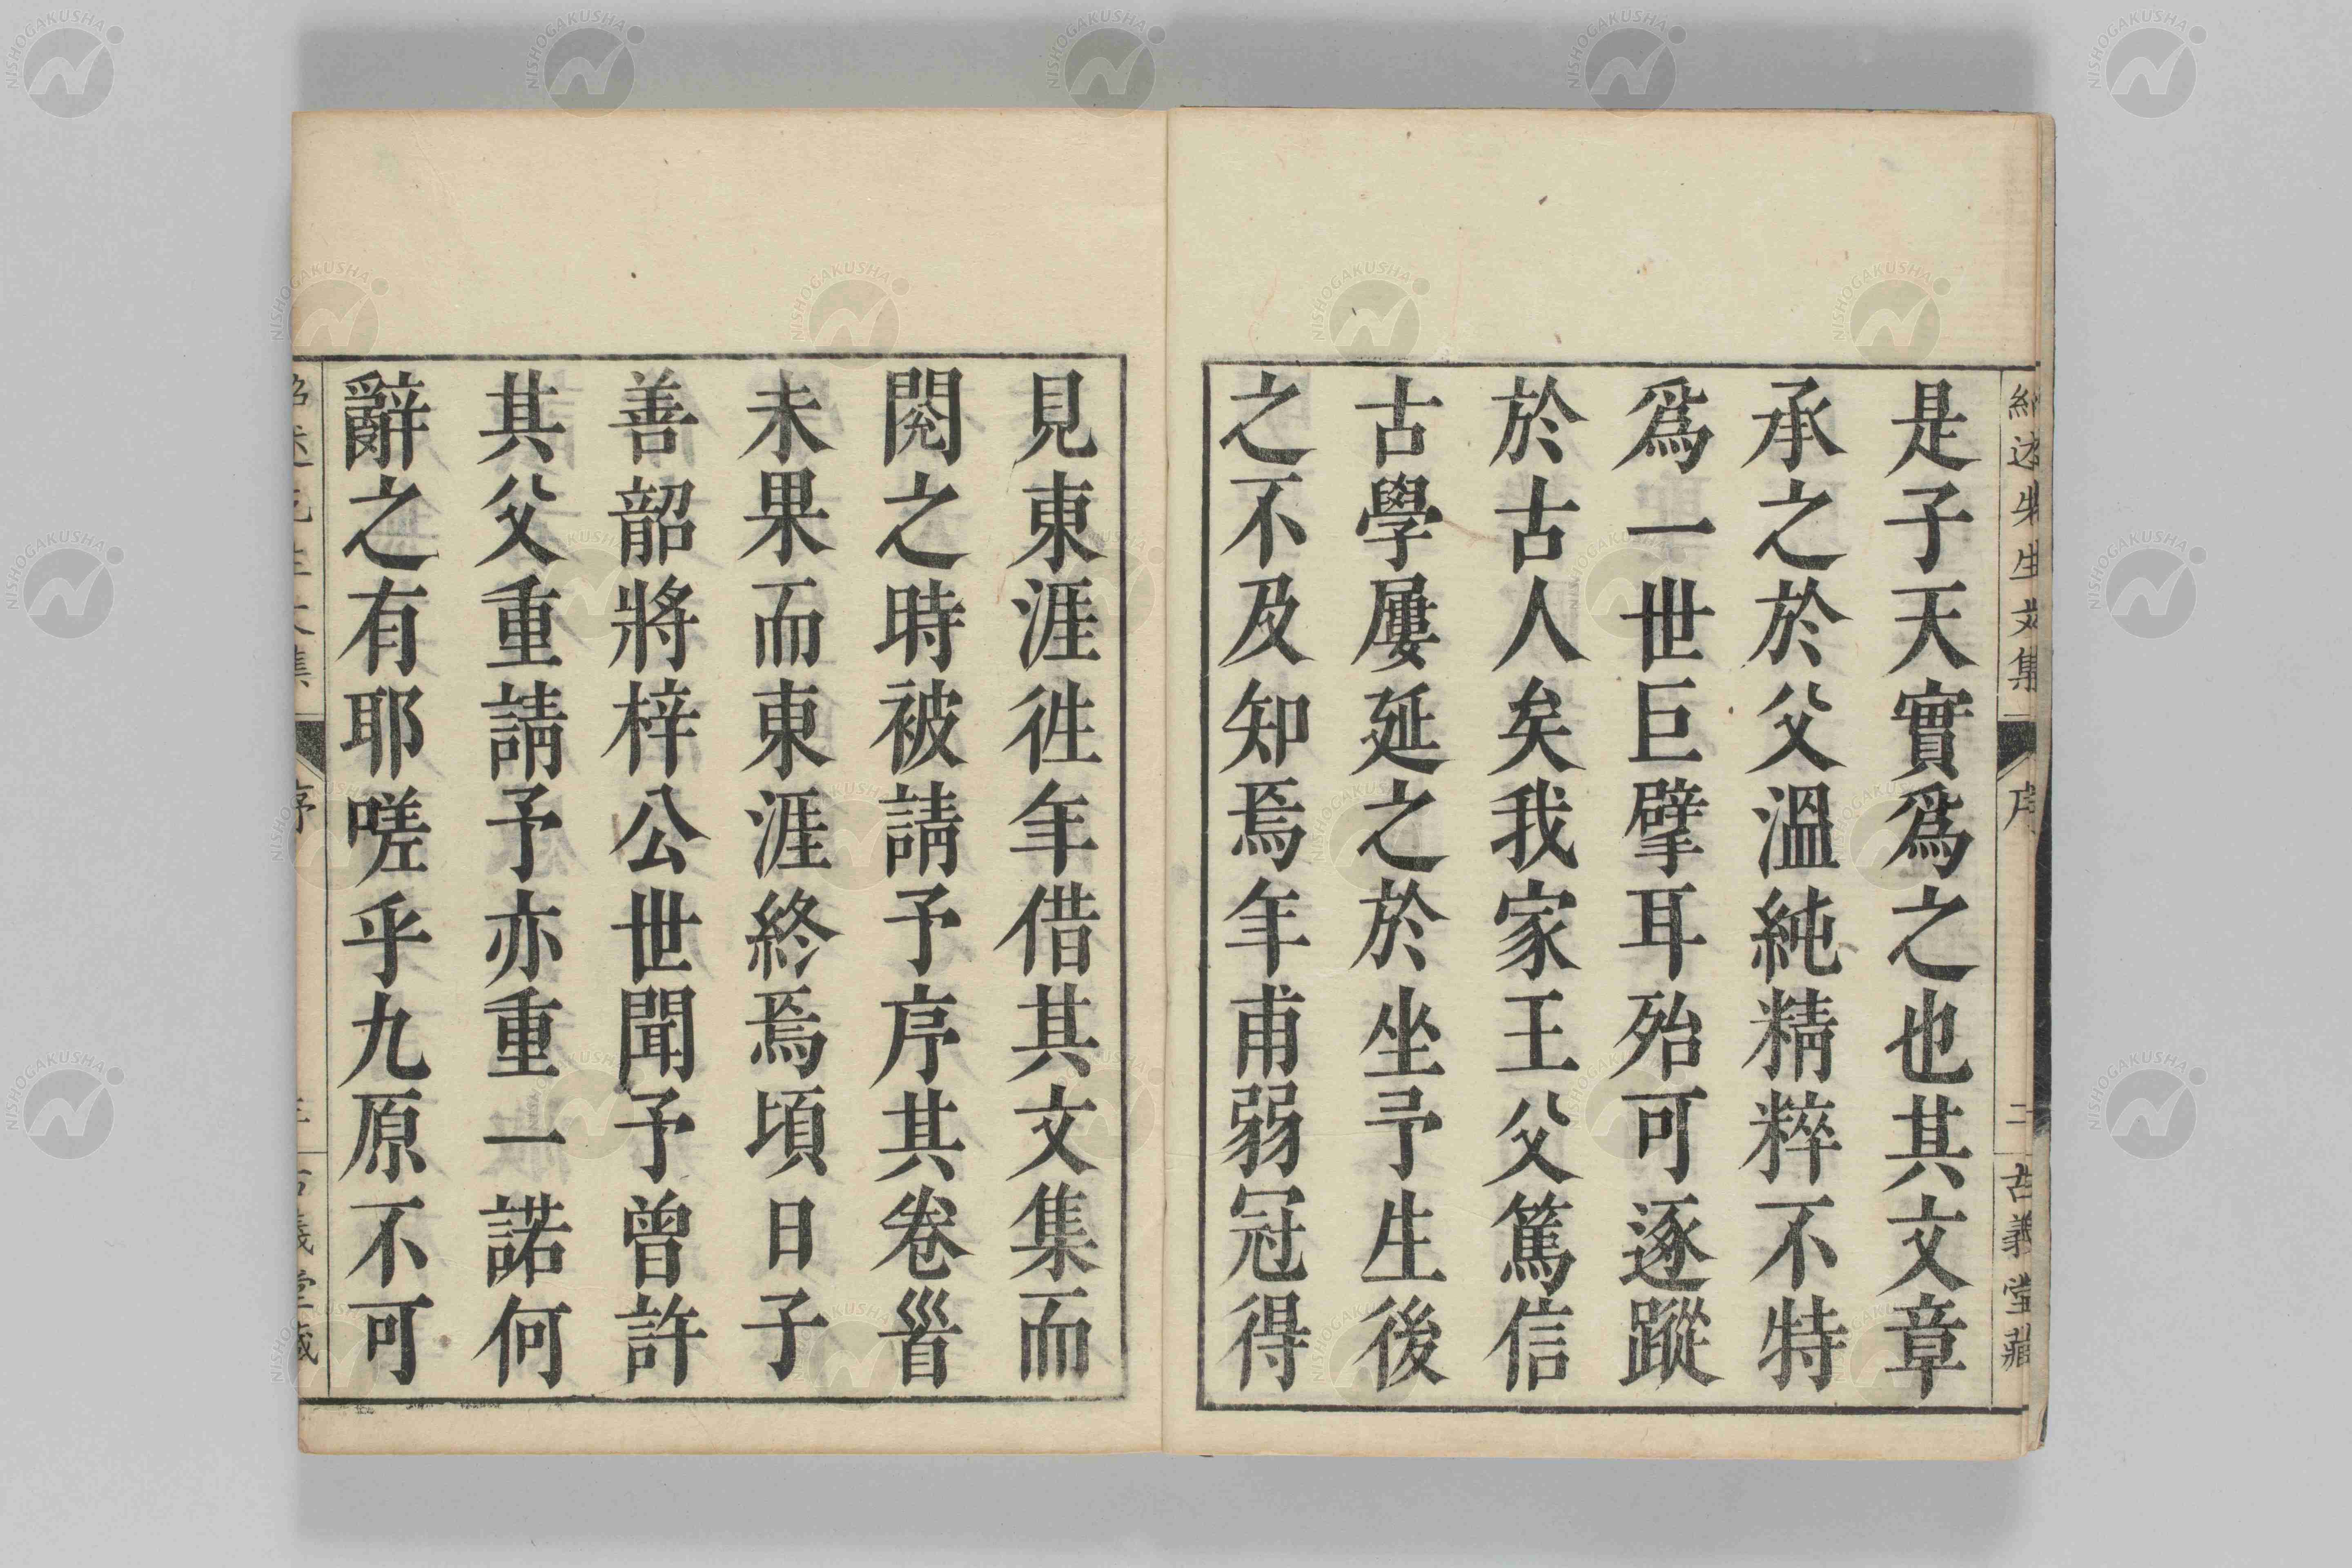 紹述先生文集
序
二
古義堂藏
是子天實爲之也其文章
承之於父溫純精粹不特
爲一世巨擘耳殆可逐蹤
於古人矣我家王父篤信
古學屢延之於坐予生後
之不及知焉年甫弱冠得
見東涯徃年借其文集而
閱之時被請予序其卷首
未果而東涯終焉頃日子
善韶將梓公世聞予曾許
其父重請予亦重一諾何
辭之有耶嗟乎九原不可
NISHOGAKUSHA